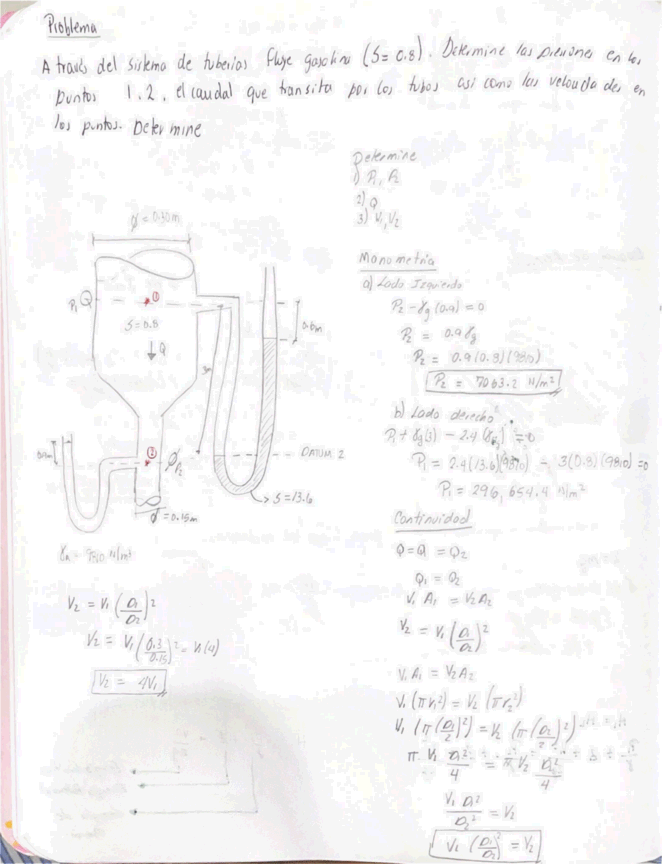 Problema
A través del sistema de tuberías fluye gasolina (S= 0.8). Determine las presiones en los
puntos 1.2, el caudal que transita por los tubos asi como las velocidades en
los puntos. Determine
Determine
1) P₁, P₂
2) Q
3) V₁, V₂
Ø = 0.30m
P₁
①
S=0.8
Q
0.6m
3m
②
P₂
DATUM 2
S=13.6
Ø = 0.15m
V₂ = V₁ (D₁/D₂)²
V₂ = V₁ (0.3/0.15)² = V₁(4)
V₂ = 4V₁
Manometria
a) Lado Izquierdo
P₂ - γg (0.9) = 0
P₂ = 0.9 γg
P₂ = 0.9(0.8)(9810)
P₂ = 7063.2 N/m²
b) Lado derecho
P₁ + γg(3) - 2.4 =0
P₁ = 2.4(13.6)(9810) - 3(0.8)(9810) =0
P₁ = 296,654.4 N/m²
Continuidad
Q=Q₁ = Q₂
Q₁ = Q₂
V₁ A₁ = V₂A₂
V₂ = V₁ (D₁/D₂)²
V₁ A₁ = V₂A₂
V₁ (πr₁²) = V₂ (πr₂²)
V₁ (π(D₁/2)²) = V₂ (π(D₂/2)²)
π V₁ D₁²/4 = π V₂ D₂²/4
V₁ D₁²/D₂² = V₂
V₁ (D₁/D₂)² = V₂